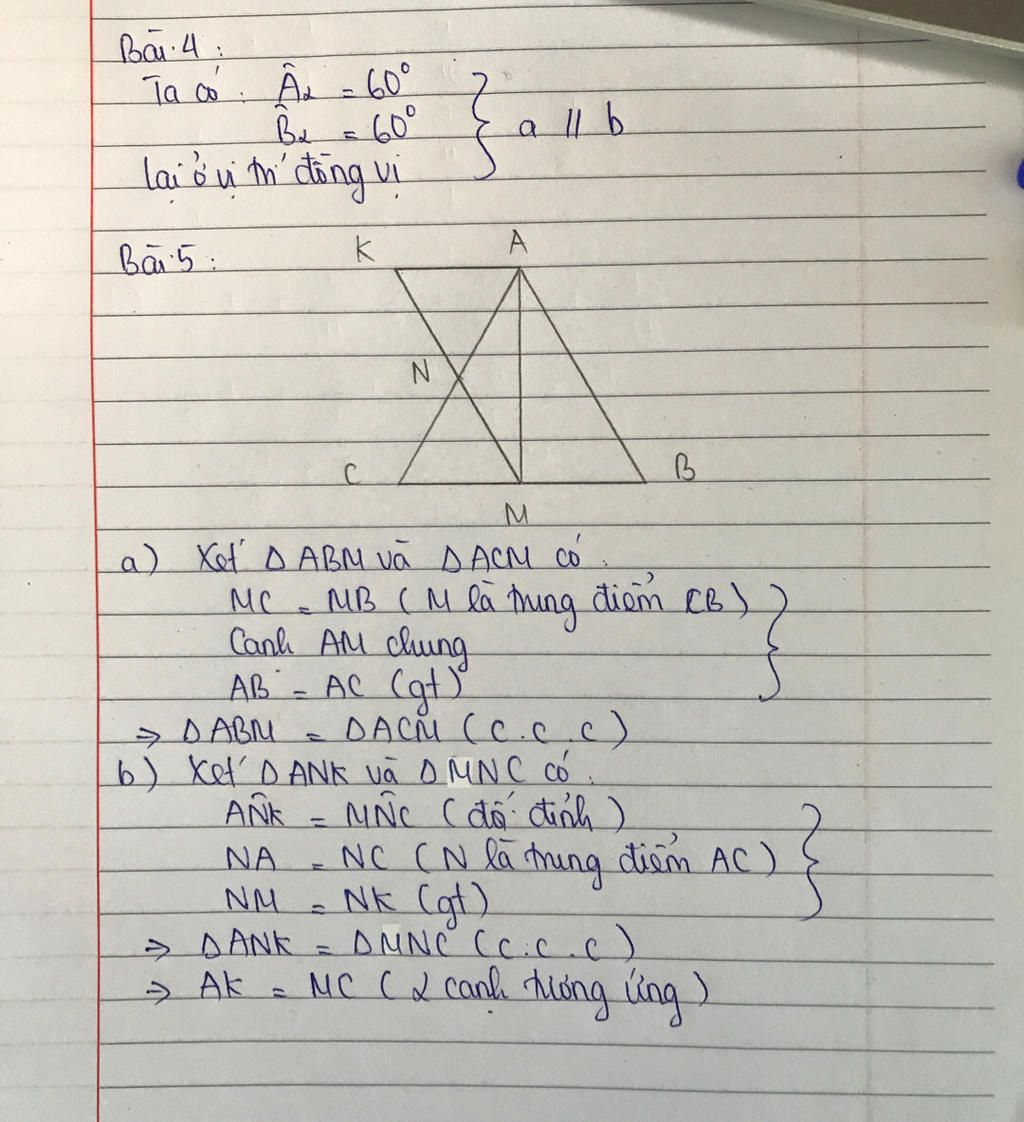 Bài 4 :
Ta có : Â₂ = 60°
B̂₂ = 60°
a // b
lại ở vị trí đồng vị
Bài 5 :
K A
N
C B
M
a) Xét Δ ABM và Δ ACM có :
MC = MB ( M là trung điểm CB )
Cạnh AM chung
AB = AC (gt)
⇒ Δ ABM = Δ ACM ( c . c . c )
b) Xét Δ ANK và Δ MNC có :
AN̂K = MN̂C ( đối đỉnh )
NA = NC ( N là trung điểm AC )
NM = NK (gt)
⇒ Δ ANK = Δ MNC ( c . c . c )
⇒ AK = MC ( 2 cạnh tương ứng )